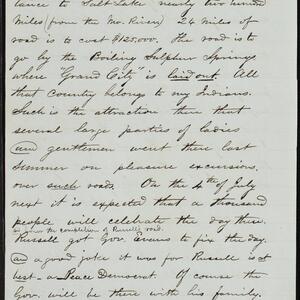 tance to Salt Lake nearly two hundred
miles (from the Mo. River) 24 miles of
road is to cost $125.000. The road is to
go by the Boiling Sulphur Springs
where Grand City is laid out. All
that country belongs to my Indians.
Such is the attraction there that
several large parties of ladies
and gentlemen went there last
summer on pleasure excursions,
over such roads. On the 4th of July
next it is expected that a thousand
people will celebrate the day there.
for the completion of Russell's road.
Russell got Gov. Evans to fix the day.
and a good joke it was for Russell is at
best a Peace Democrat. Of course the
Gov. will be there with his family.